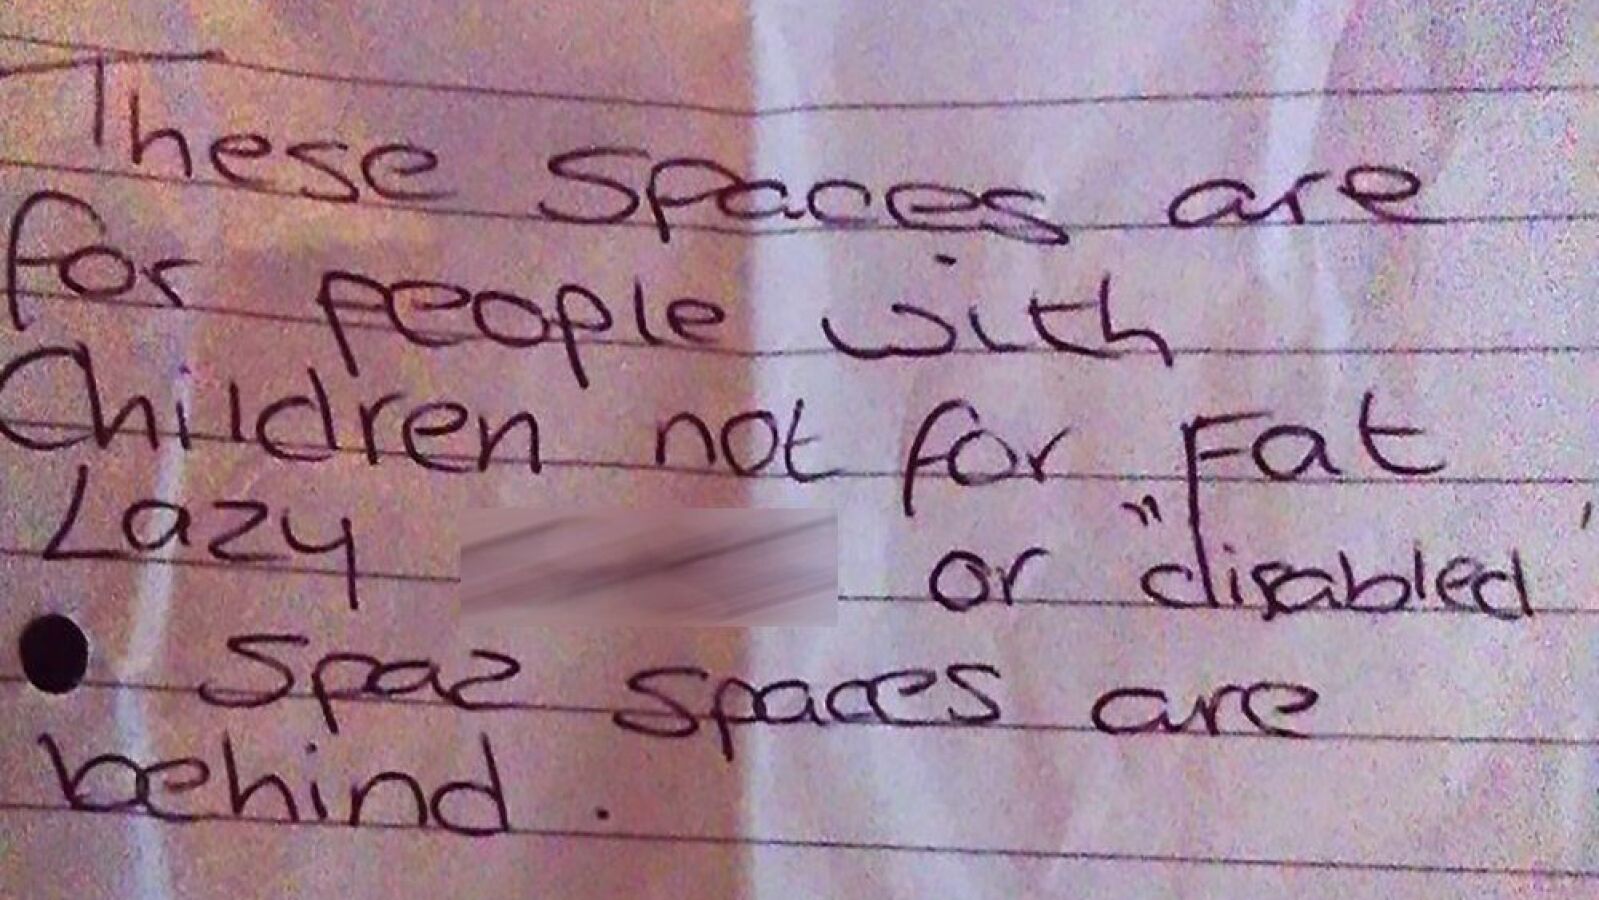 These spaces are
for people with
Children not for Fat
Lazy or "disabled"
Spaz spaces are
behind.